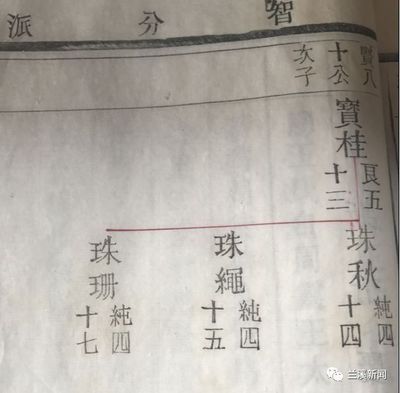 智分派
賢八
十公
次子
寶桂
良五
十三
珠秋
純四
十四
珠繩
純四
十五
珠珊
純四
十七
兰溪新闻